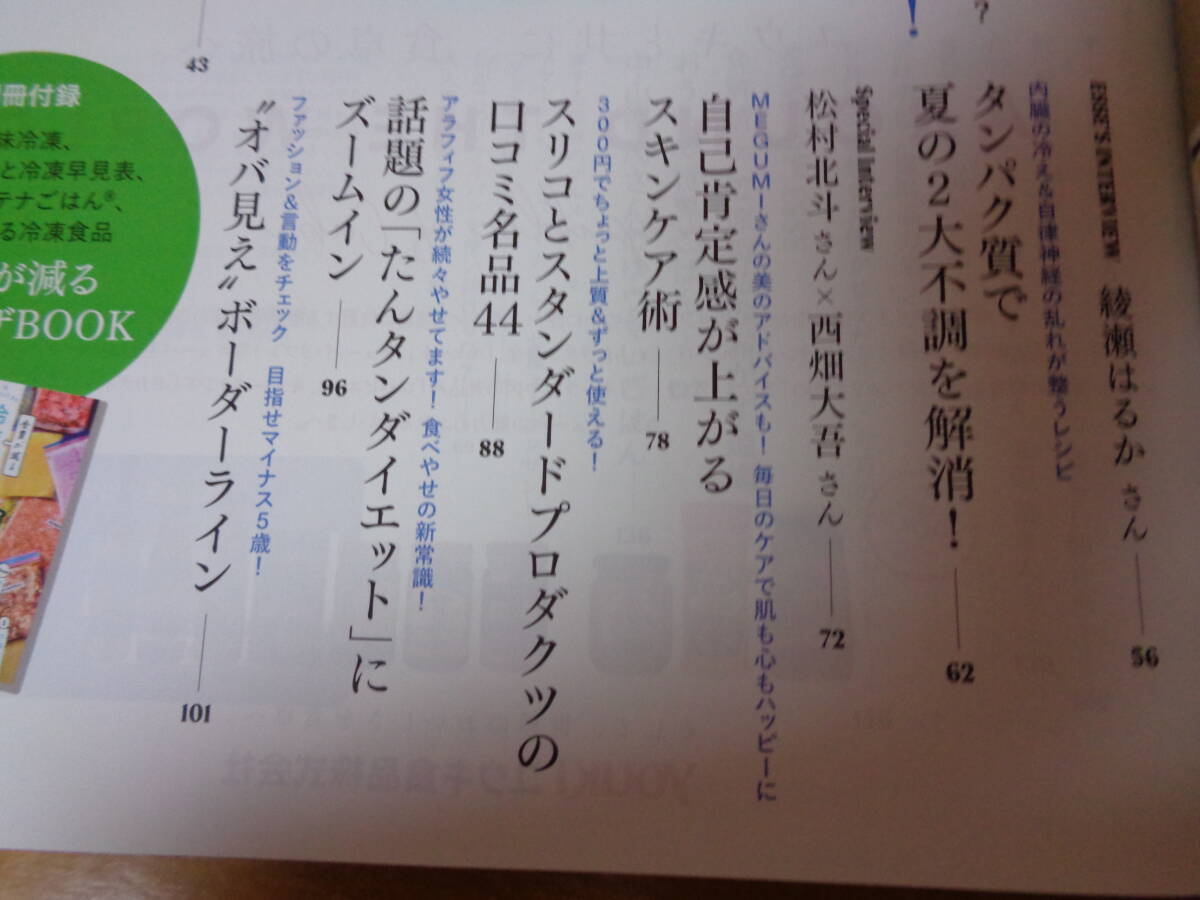 ?
!
ESSE'S INTERVIEW
綾瀬はるか さん
56
内臓の冷え&自律神経の乱れが整うレシピ
タンパク質で
夏の2大不調を解消!
62
Special Interview
松村北斗 さん×西畑大吾 さん
72
MEGUMIさんの美のアドバイスも! 毎日のケアで肌も心もハッピーに
自己肯定感が上がる
スキンケア術
78
300円でちょっと上質&ずっと使える!
スリコとスタンダードプロダクツの
口コミ名品44
88
アラフィフ女性が続々やせてます! 食べやせの新常識!
話題の「たんタンダイエット」に
ズームイン
96
ファッション&言動をチェック 目指せマイナス5歳!
“オバ見え”ボーダーライン
101
43
冊付録
味冷凍、
と冷凍早見表、
テナごはん®、
る冷凍食品
が減る
ザBOOK
YOUKI ユウキ食品株式会社